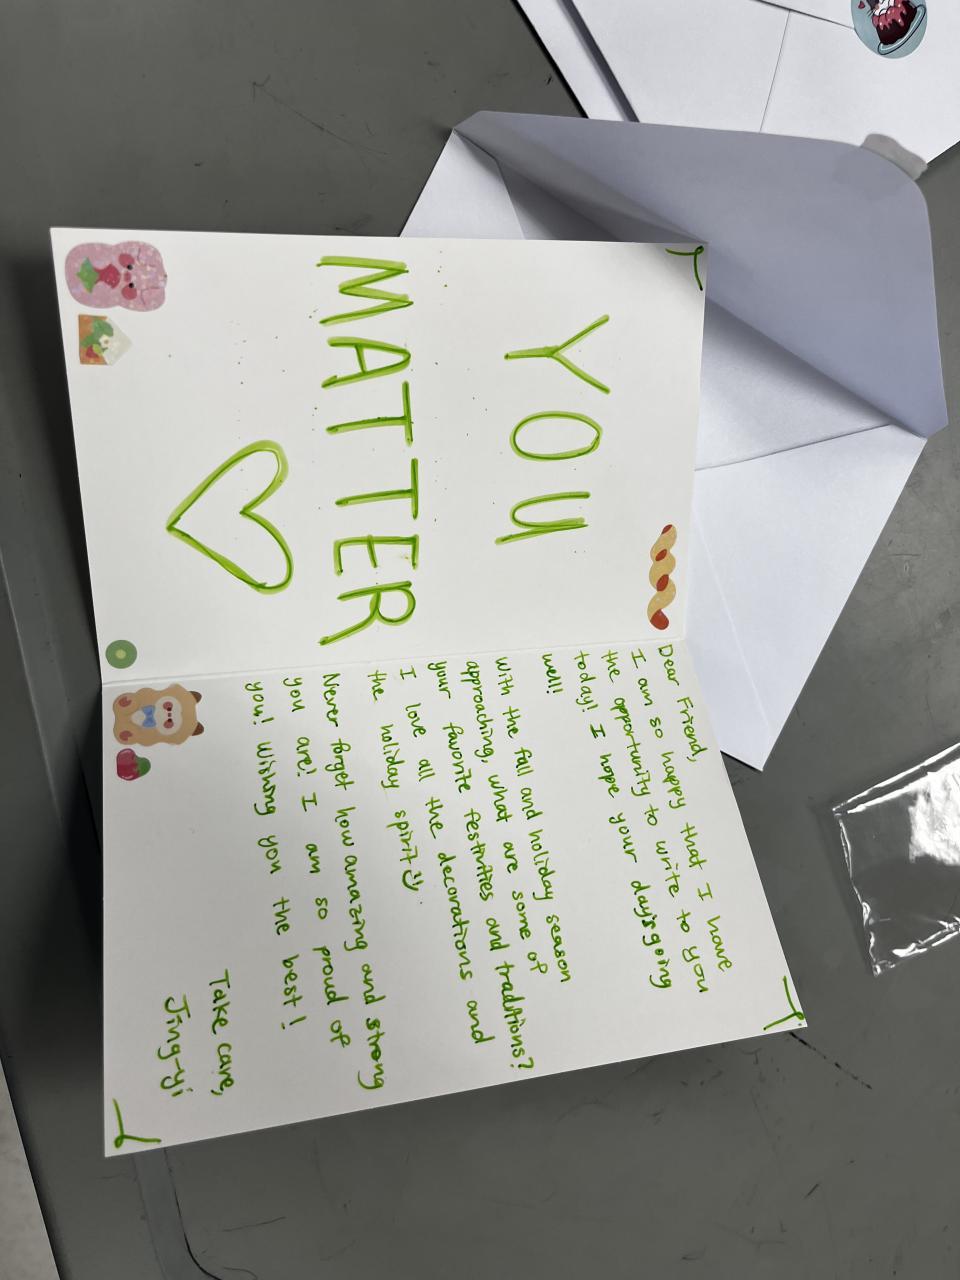 YOU
MATTER
Dear Friend,
I am so happy that I have
the opportunity to write to you
today! I hope your day's going
well!
With the fall and holiday season
approaching, what are some of
your favorite festivities and traditions?
I love all the decorations and
the holiday spirit
Never forget how amazing and strong
you are! I am so proud of
you! Wishing you the best!
Take care,
Jing-yi